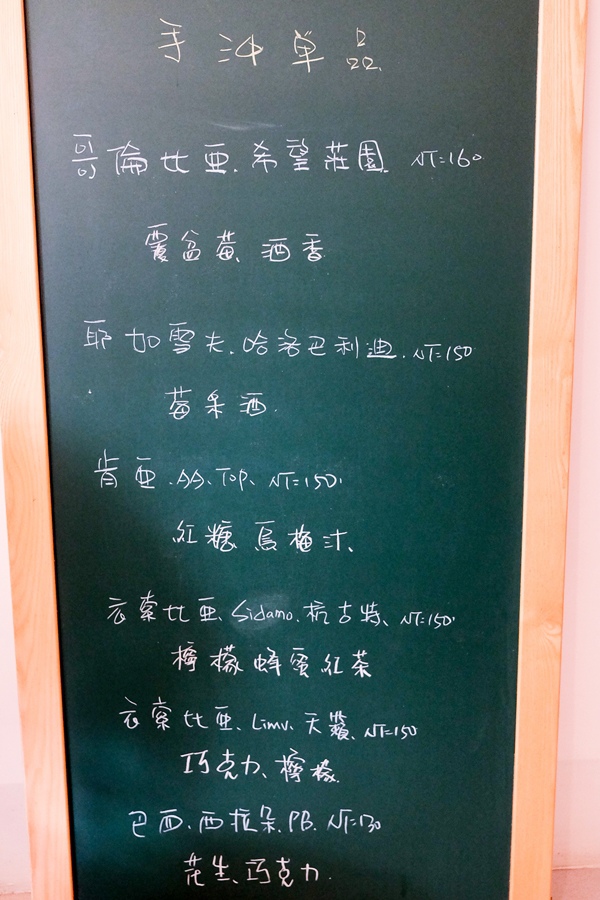 手沖单品
哥倫比亜.希望莊園. NT=160
覆盆莓 酒香
耶加雪夫.哈洛巴利迪. NT=150
莓果酒.
肯亜.AA、TOP、NT=150.
紅糖烏梅汁、
衣索比亜、Sidamo.杭古特、NT=150.
檸檬蜂蜜紅茶
衣索比亜、Limu、天籟、NT=150
巧克力、檸檬.
巴西.西拉朵.PB. NT=130
花生、巧克力.